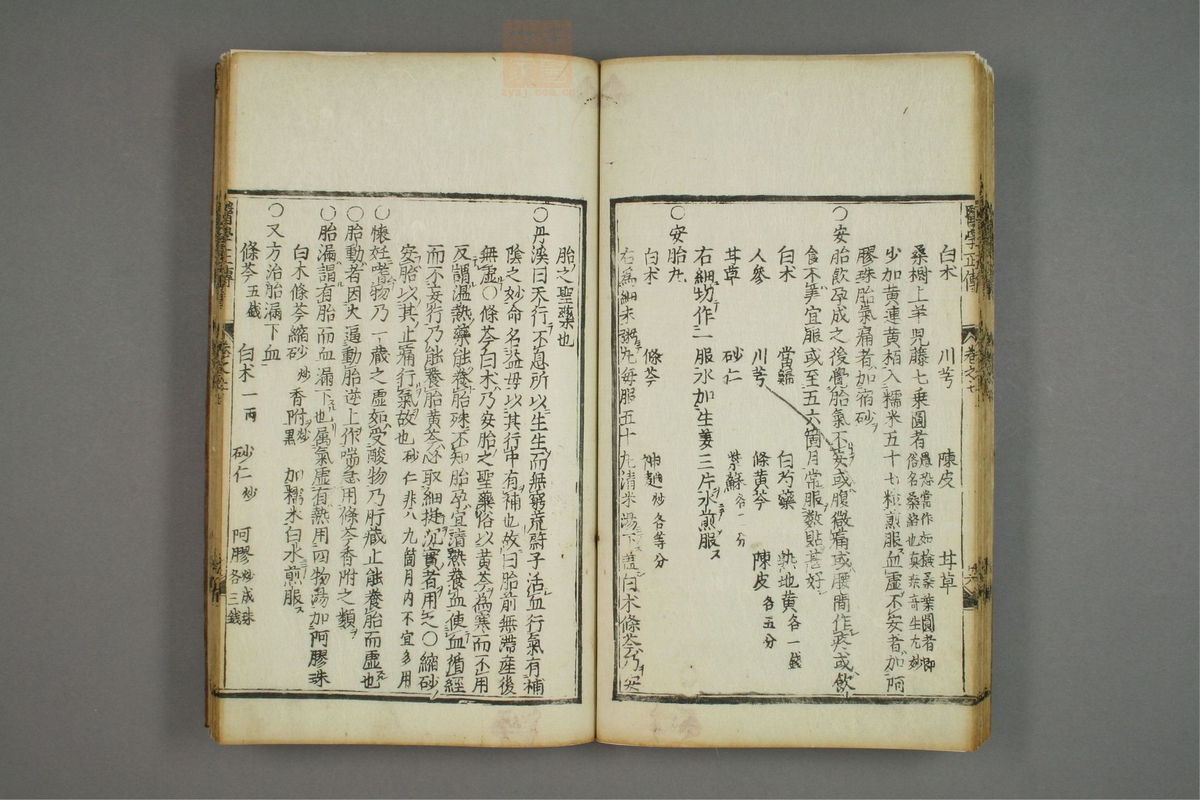 醫學正傳　卷之七
白朮　川芎　陳皮　甘草
桑樹上羊兒藤七乗圓者
愚谷當作如桜桑葉圓者即
俗名桑絡也真桑寄生尤妙
少加黄連黄栢入糯米五十七粒煎服血虛不安者加阿
膠珠胎氣痛者加宿砂
○安胎飲孕成之後覺胎氣不安或腹微痛或腰間作疼或飲
食不美宜服或至五六箇月常服數貼甚好
白朮　當歸　白芍藥　熟地黄各一戔
人參　川芎　條黄芩　陳皮各五分
甘草　砂仁　紫蘇各一分
右細切作一服水加生姜三片水煎服
○安胎丸
白朮　條芩　神麯炒各等分
右爲細末粥丸每服五十丸清米湯下盖白朮條芩乃安
胎之聖藥也
○丹溪曰天行不息所以生生而無窮茺蔚子活血行氣有補
陰之妙命名益母以其行中有補也故曰胎前無滯産後
無虛○條芩白朮乃安胎之聖藥俗以黄芩爲寒而不用
反謂温熱藥能養胎殊不知胎孕宜清熱養血使血循經
而不妄行乃能養胎黄芩必取細挺沉實者用之○縮砂
安胎以其止痛行氣故也砂仁非八九箇月内不宜多用
○懷妊嗜物乃一歳之虛如受酸物乃肝歳止能養胎而虛也
○胎動者因火逼動胎逆上作喘急用條芩香附之類
○胎漏謂有胎而血漏下也属氣虛有熱用四物湯加阿膠珠
白朮條芩縮砂炒香附炒黒　加糯米白水煎服
○又方治胎漏下血
條芩五戔　白朮一兩　砂仁炒　阿膠炒成珠各三錢
醫學正傳